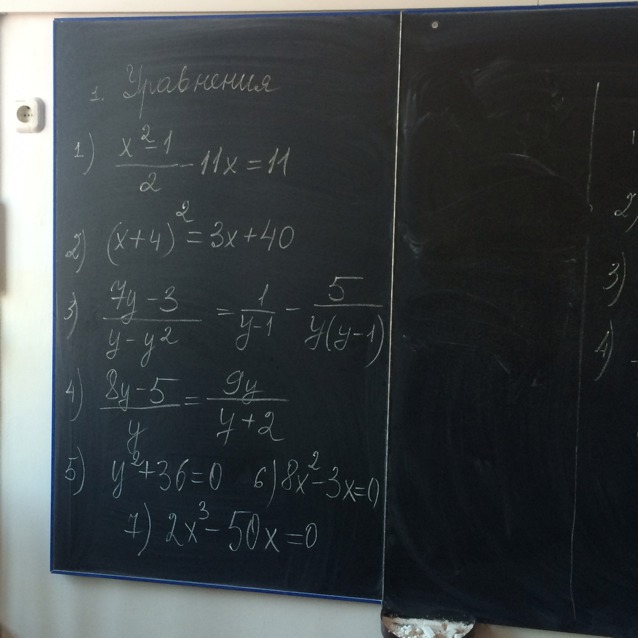 1. Уравнения
1) (x²-1)/2 - 11x = 11
2) (x+4)² = 3x+40
3) (7y-3)/(y-y²) = 1/(y-1) - 5/(y(y-1))
4) (8y-5)/y = 9y/(y+2)
5) y²+36=0 6) 8x²-3x=0
7) 2x³-50x=0
2)
3)
4)